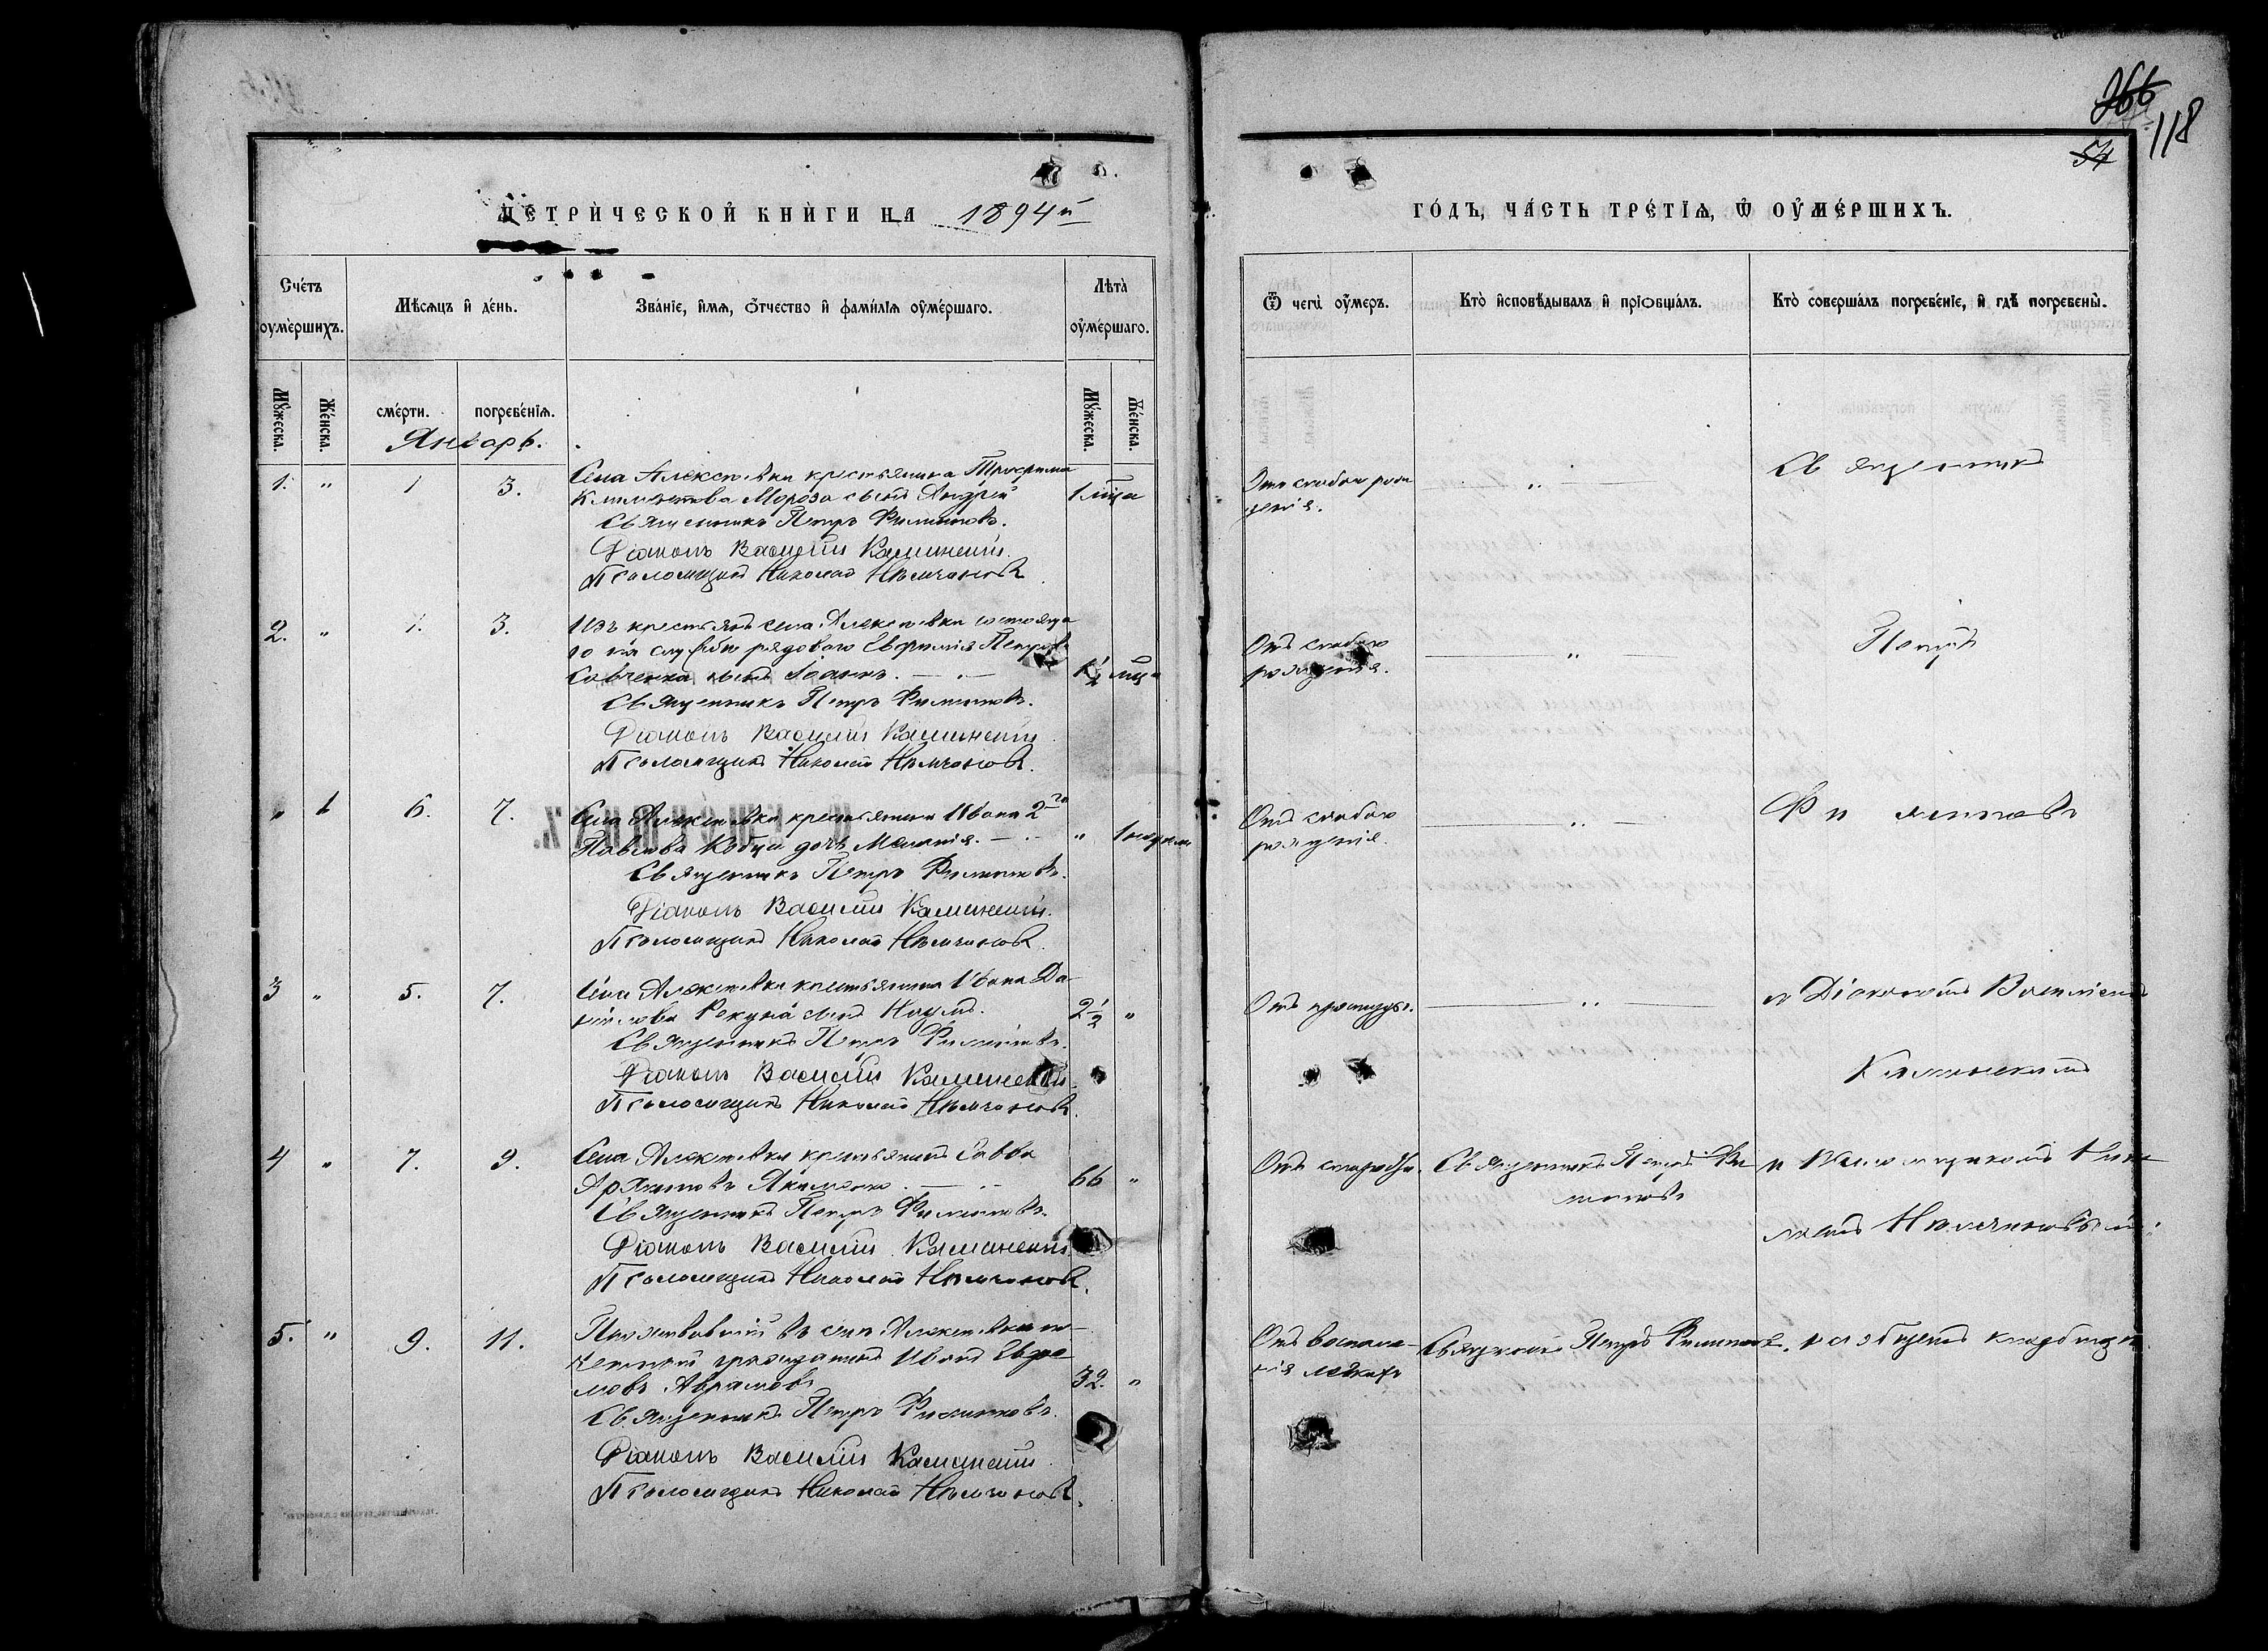 266
54
118
МЕТРИ́ЧЕСКОЙ КНИ́ГИ НА 1894й
ГО́ДЪ, ЧА́СТЬ ТРЕ́ТІѦ, Ѽ ОУ҆МЕ́РШИХЪ.
Сче́тъ оуме́ршихъ.
Мѣ́сѧцъ и҆ де́нь.
Зва́нїе, и҆́мѧ, ѻ҆́тчество и҆ фами́лїѧ оуме́ршаго.
Лѣта̀ оу҆ме́ршаго.
Ѿ чегѡ̀ оу҆́меръ.
Кто̀ и҆сповѣ́дывалъ и҆ прїобща́лъ.
Кто̀ соверша́лъ погребе́нїе, и҆ гдѣ̀ погребены̀.
Мꙋ́жеска.
Же́нска.
сме́рти.
погребе́нїѧ.
Мꙋ́жеска.
Же́нска.
Январь.
1. " 1 3. Села Алексѣевки крестьянина Трофима
Климентова Мороза сынъ Андрей 1 мѣца
Священникъ Петръ Филиповъ.
Діаконъ Василій Каминскій.
Псаломщикъ Николай Нѣмчиновъ
Отъ слабаго рож
денія.
"
Священникъ
2. " 1. 3. Изъ крестьянъ села Алексѣевки состояща
го на службѣ рядоваго Евфимія Петрова
Савченка сынъ Іоаннъ. 1½ мѣц
Священникъ Петръ Филиповъ.
Діаконъ Василій Каминскій
Псаломщикъ Николай Нѣмчиновъ.
Отъ слабаго
рожденія.
"
Петръ
" 1 6. 7. Села Алексѣевки крестьянина Ивана 2го
Павлова дочь Меланія. " 1 недѣли
Священникъ Петръ Филиповъ.
Діаконъ Василій Каминскій.
Псаломщикъ Николай Нѣмчиновъ.
Отъ слабаго
рожденія.
"
Филиповъ
3 " 5. 7. Села Алексѣевки крестьянина Ивана Да-
нилова сынъ Наумъ. 2½ "
Священникъ Петръ Филиповъ.
Діаконъ Василій Каминскій.
Псаломщикъ Николай Нѣмчиновъ.
Отъ простуды.
"
съ Діакономъ Василіемъ
Каминскимъ
4 " 7. 9. Села Алексѣевки крестьянинъ Савва
Якименко. 66 "
Священникъ Петръ Филиповъ.
Діаконъ Василій Каминскій.
Псаломщикъ Николай Нѣмчиновъ.
Отъ старости.
Священникъ Петръ Фи
липовъ
и Псаломщикомъ Нико
лаемъ Нѣмчиновымъ
5. " 9. 11. Проживавшій въ селѣ Алексѣевкѣ по-
четный гражданинъ Иванъ Ефре
мовъ Аврамовъ 32. "
Священникъ Петръ Филиповъ.
Діаконъ Василій Каминскій.
Псаломщикъ Николай Нѣмчиновъ.
Отъ воспале-
нія легкихъ
Священникъ Петръ Филиповъ.
на общемъ кладбищѣ.